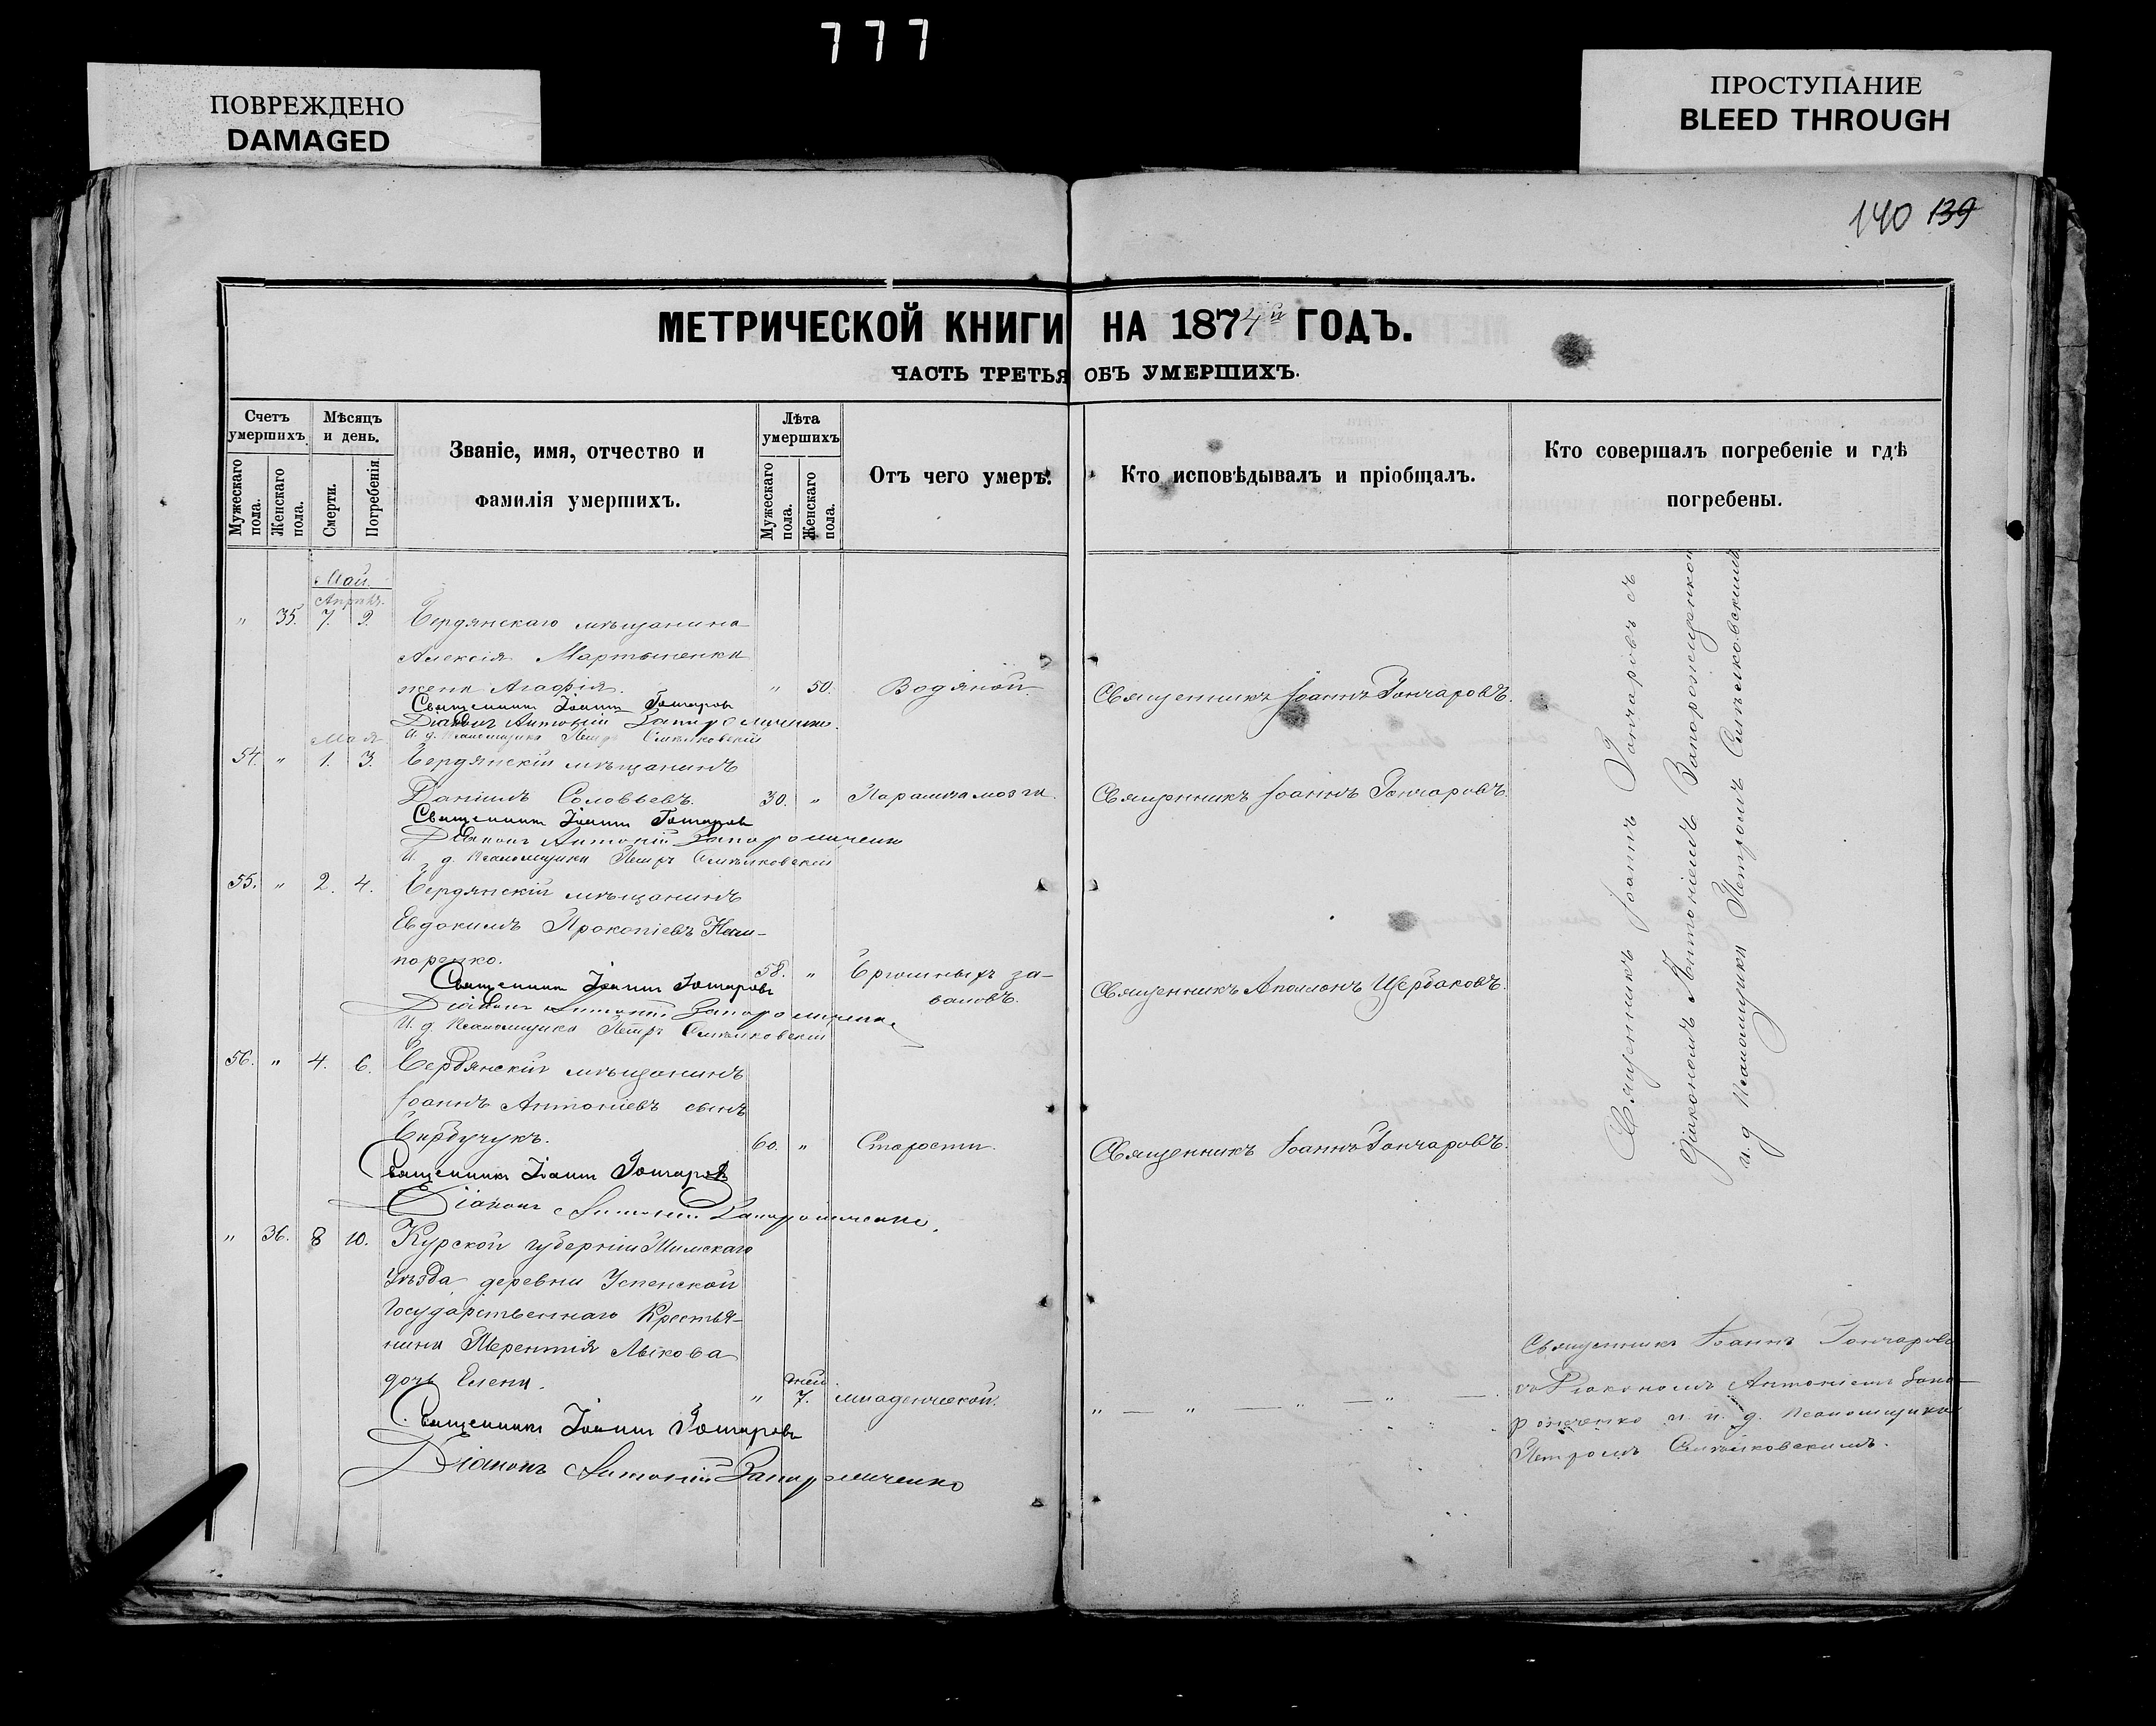 777
ПОВРЕЖДЕНО
DAMAGED
ПРОСТУПАНИЕ
BLEED THROUGH
140 139
МЕТРИЧЕСКОЙ КНИГИ НА 1874й ГОДЪ.
ЧАСТЬ ТРЕТЬЯ ОБЪ УМЕРШИХЪ.
Счетъ умершихъ.
Мужескаго пола.
Женскаго пола.
Мѣсяцъ и день.
Смерти.
Погребенія.
Званіе, имя, отчество и
фамилія умершихъ.
Лѣта умершихъ
Мужескаго пола.
Женскаго пола.
Отъ чего умеръ.
Кто исповѣдывалъ и пріобщалъ.
Кто совершалъ погребеніе и гдѣ
погребены.
Май.
Апрѣль.
" 35. 7. 9. Бердянскаго мѣщанина
Алексія Мартыненки
жена Агафія. " 50. Водяной. Священникъ Іоаннъ Гончаровъ.
Священникъ Іоаннъ Гончаровъ
Діаконъ Антоній Запорожченко.
И. д. Псаломщика Петръ
Мая
54. " 1. 3. Бердянскій мѣщанинъ
Даніилъ Соловьевъ. 30. " Паралича мозга. Священникъ Іоаннъ Гончаровъ.
Священникъ Іоаннъ Гончаровъ
Діаконъ Антоній Запорожченко
И. д. Псаломщика Петръ
55. " 2. 4. Бердянскій мѣщанинъ
Евдокимъ Прокопіевъ
поренко. 58. " Брюшныхъ за-
валовъ. Священникъ Аполлонъ Щербаковъ.
Священникъ Іоаннъ Гончаровъ
Діаконъ Антоній Запорожченко
И. д. Псаломщика Петръ
56. " 4. 6. Бердянскій мѣщанинъ
Іоаннъ Антоніевъ сынъ
60. " Старости. Священникъ Іоаннъ Гончаровъ.
Священникъ Іоаннъ Гончаровъ
Діаконъ Антоній Запорожченко.
" 36. 8 10. Курской губерніи Тимскаго
Уѣзда, деревни Успенской
Государственнаго Крестья-
нина Терентія Лыкова
дочь Елена. " дней 7. младенческой. " — " — " — " —
Священникъ Іоаннъ Гончаровъ
Діаконъ Антоній Запорожченко
Священникъ Іоаннъ Гончаровъ съ
діакономъ Антоніемъ Запорожченкой
и. д. Псаломщика Петромъ
Священникъ Іоаннъ Гончаровъ
съ Діакономъ Антоніемъ Запо-
рожченко и и. д. Псаломщика
Петромъ